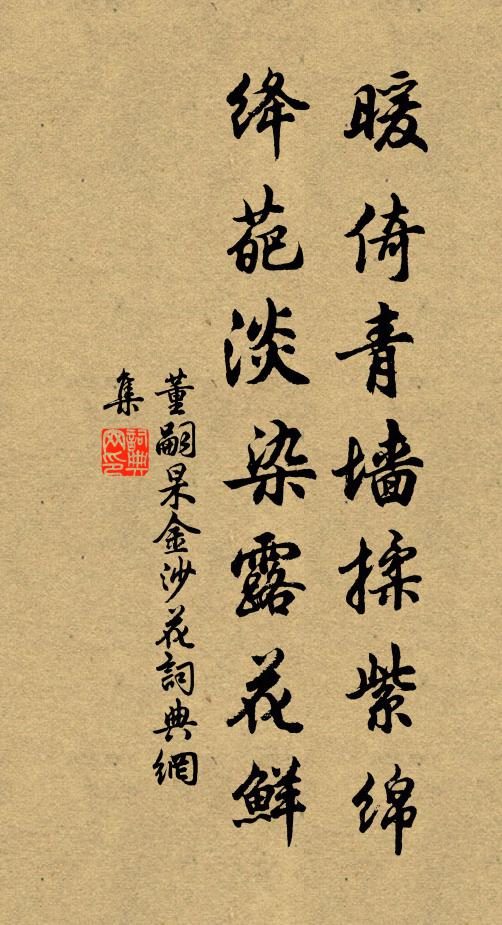 暖倚青墙揉紫绵
绛葩淡染露花鲜
董嗣杲金沙花詞典網
集
詞典
网印